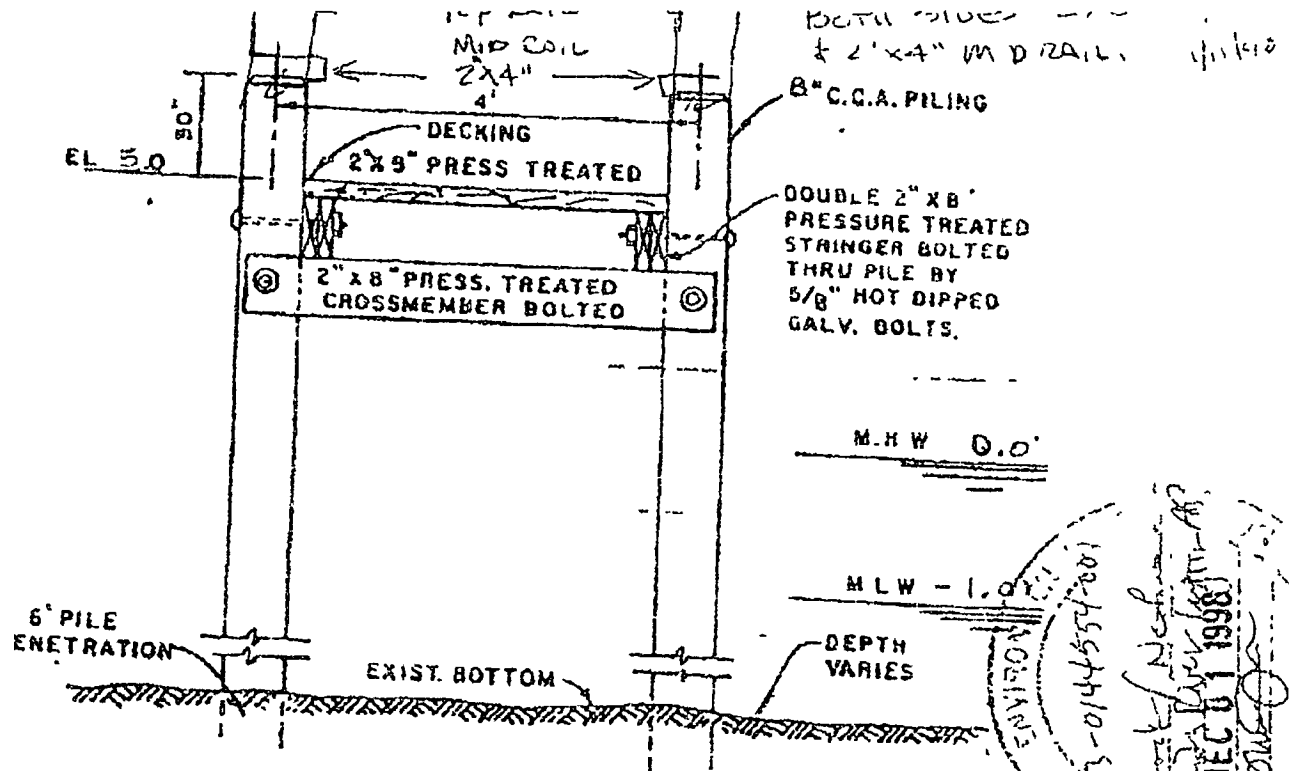 BOTH SIDES
MID COIL
2"X4"
4'
8" C.C.A. PILING
DECKING
EL 5.0
2"X8" PRESS TREATED
DOUBLE 2" X 8"
PRESSURE TREATED
STRINGER BOLTED
THRU PILE BY
5/8" HOT DIPPED
GALV. BOLTS.
2" X 8" PRESS. TREATED
CROSSMEMBER BOLTED
M.H W 0.0'
M L W - 1.0'
6' PILE
ENETRATION
EXIST. BOTTOM
DEPTH
VARIES
ENVIRON
-0144554-001
DEC 01 1998